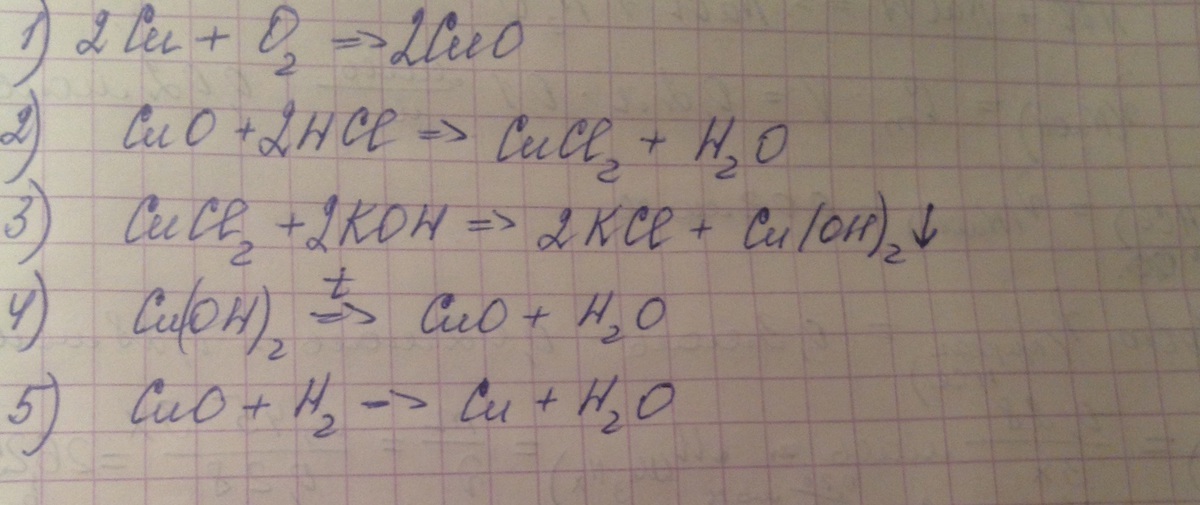 1) 2Cu + O₂ => 2CuO
2) CuO + 2HCl => CuCl₂ + H₂O
3) CuCl₂ + 2KOH => 2KCl + Cu(OH)₂↓
t
4) Cu(OH)₂ => CuO + H₂O
5) CuO + H₂ -> Cu + H₂O